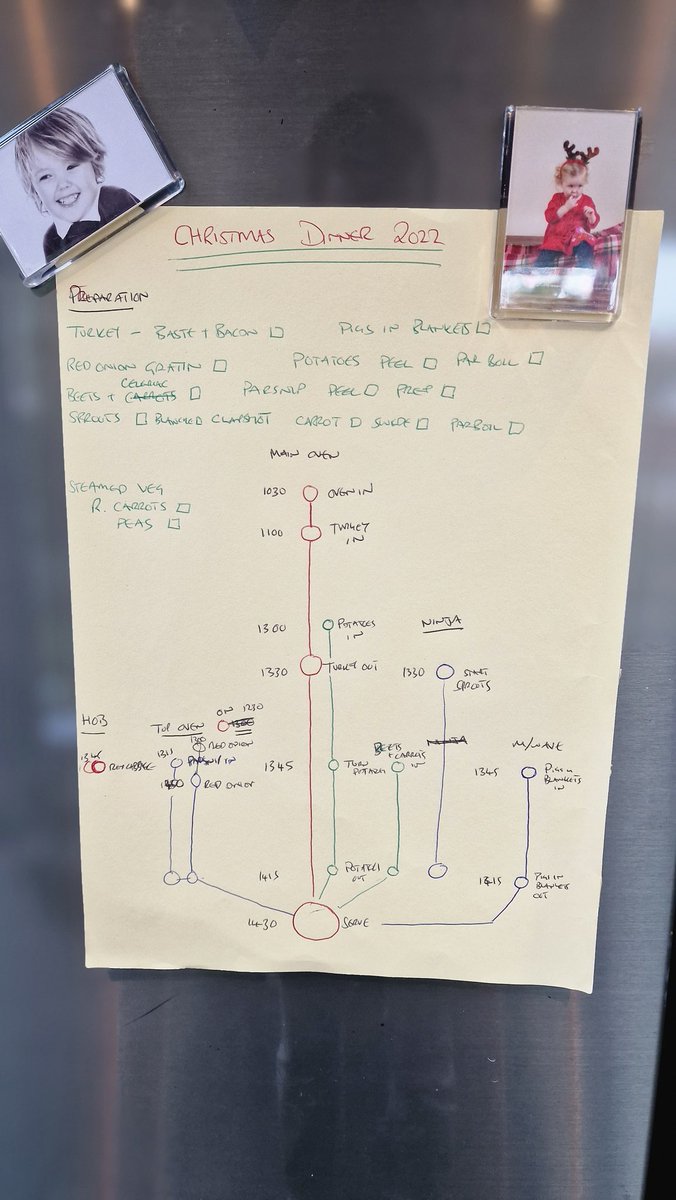 CHRISTMAS DINNER 2022
PREPARATION
TURKEY - BASTE + BACON PIGS IN BLANKETS
RED ONION GRATIN POTATOES PEEL PAR BOIL
CELERIAC
BEETS + CARROTS PARSNIP PEEL PREP
SPROUTS BLANCHED CLAPSHOT CARROT SWEDE PARBOIL
MAIN OVEN
STEAMED VEG
R. CARROTS
PEAS
1030 OVEN IN
1100 TURKEY IN
1300 POTATOES IN
NINJA
1330 TURKEY OUT
1330 START SPROUTS
HOB
TOP OVEN
ON 1230
1300 RED ONION
1345 RED CABBAGE
1315 PARSNIP IN
RED ONION
1345 TURN POTATO
BEETS + CARROTS IN
NINJA
M/WAVE
1345 PIGS IN BLANKETS IN
1415 POTATO OUT
1415 PIGS IN BLANKET OUT
1430 SERVE